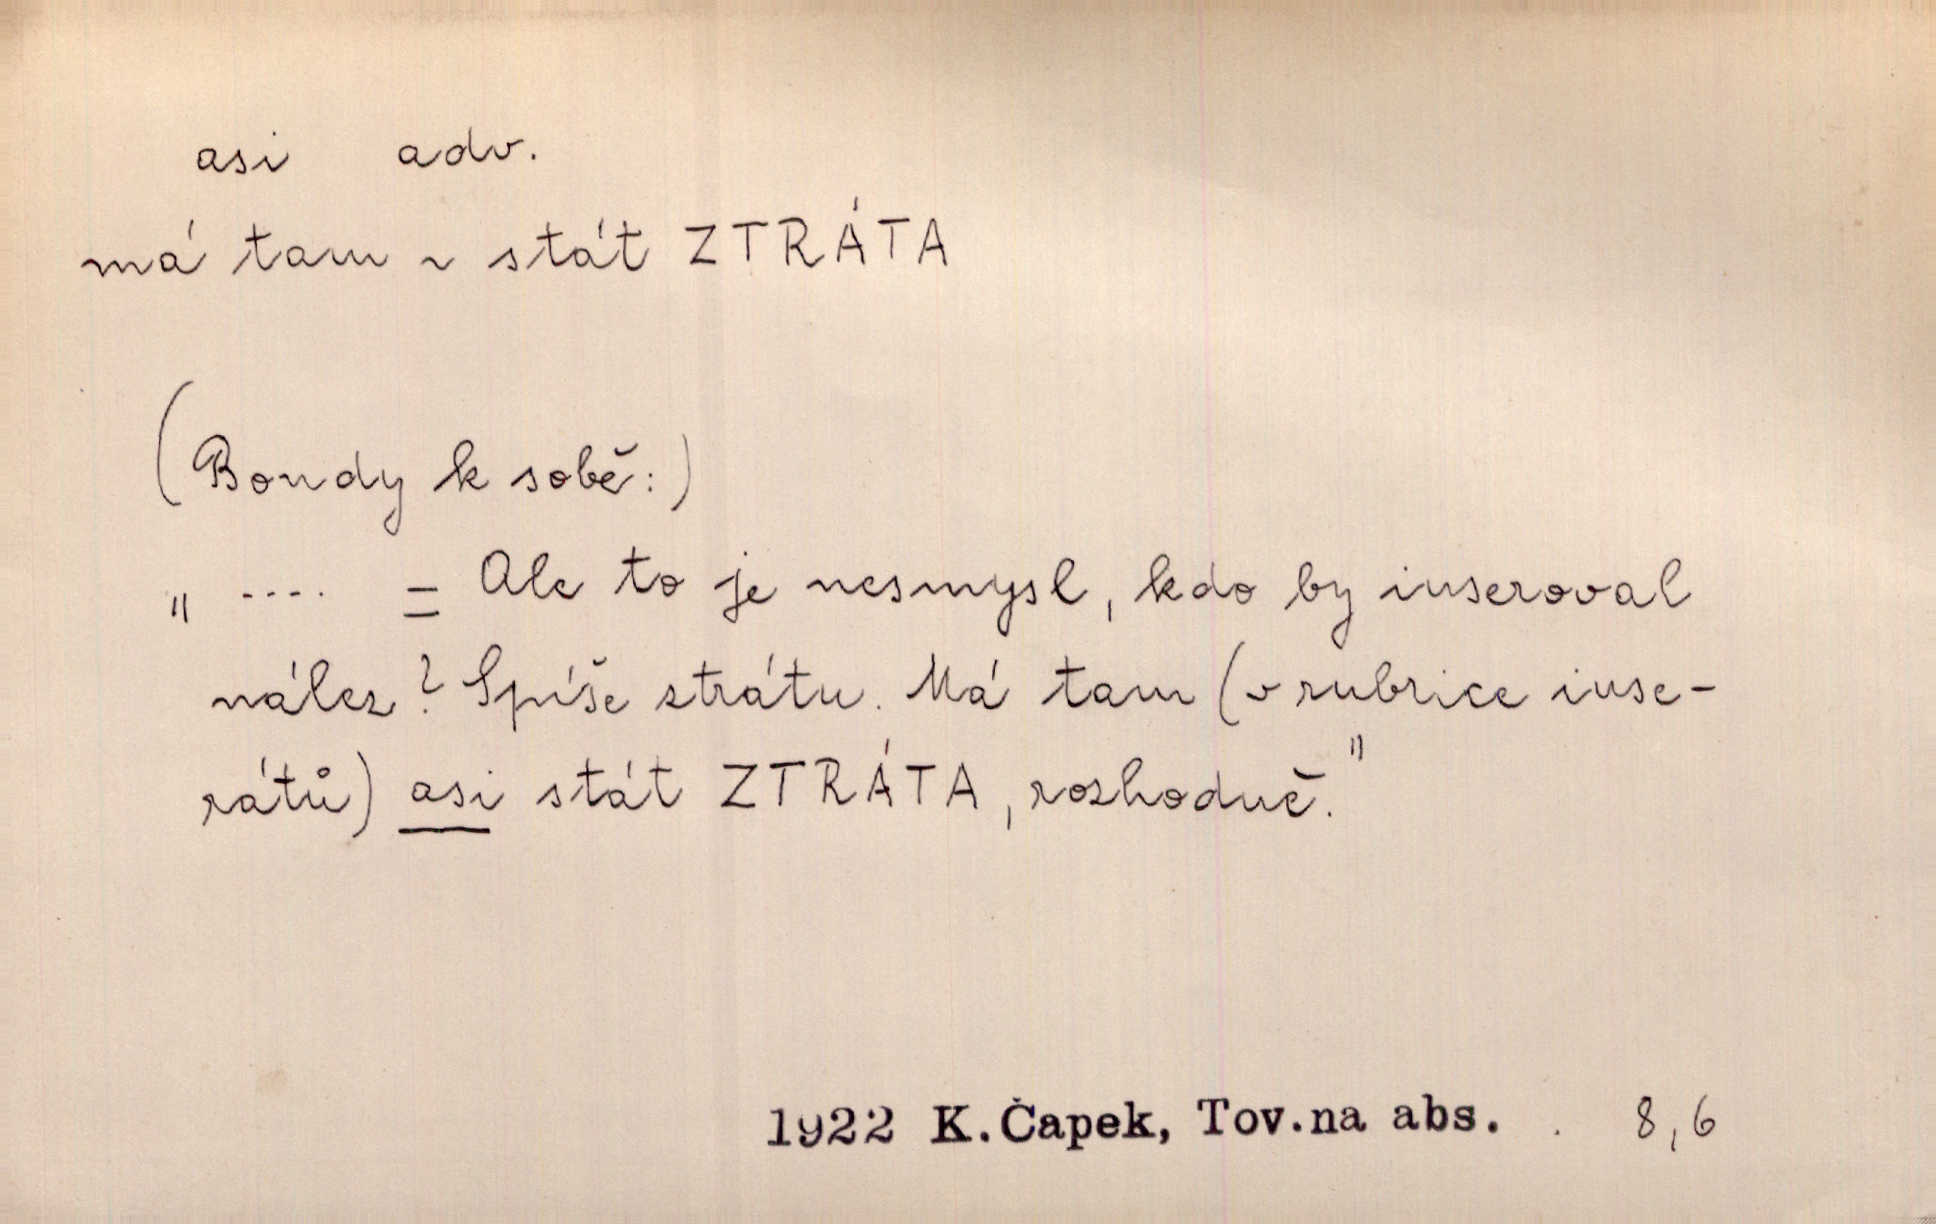 asi adv.
má tam ~ stát ZTRÁTA
(Bondy k sobě:)
„ .... = Ale to je nesmysl, kdo by inseroval
nález? Spíše ztrátu. Má tam (v rubrice inse-
rátů) asi stát ZTRÁTA, rozhodně."
1922 K.Čapek, Tov.na abs. . 8,6